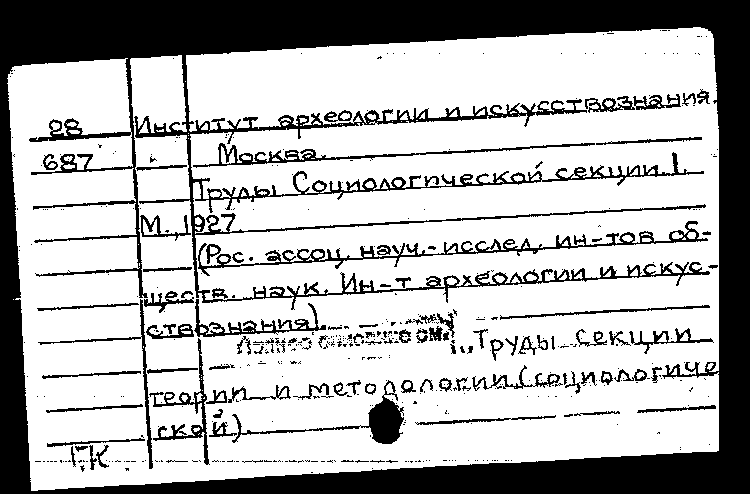 28 Институт археологии и искусствознания.
687 Москва.
Труды Социологической секции. 1.
М., 1927.
(Рос. ассоц. науч.-исслед. ин-тов об-
ществ. наук. Ин-т археологии и искус-
ствознания).
Полное описание см. "Труды секции
теории и методологии (социологиче
ской).
ГК